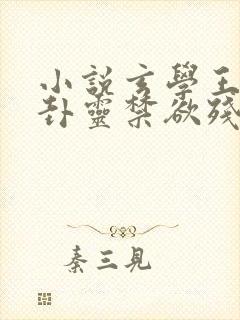 小說玄學王
卦靈禁欲殘
秦三見